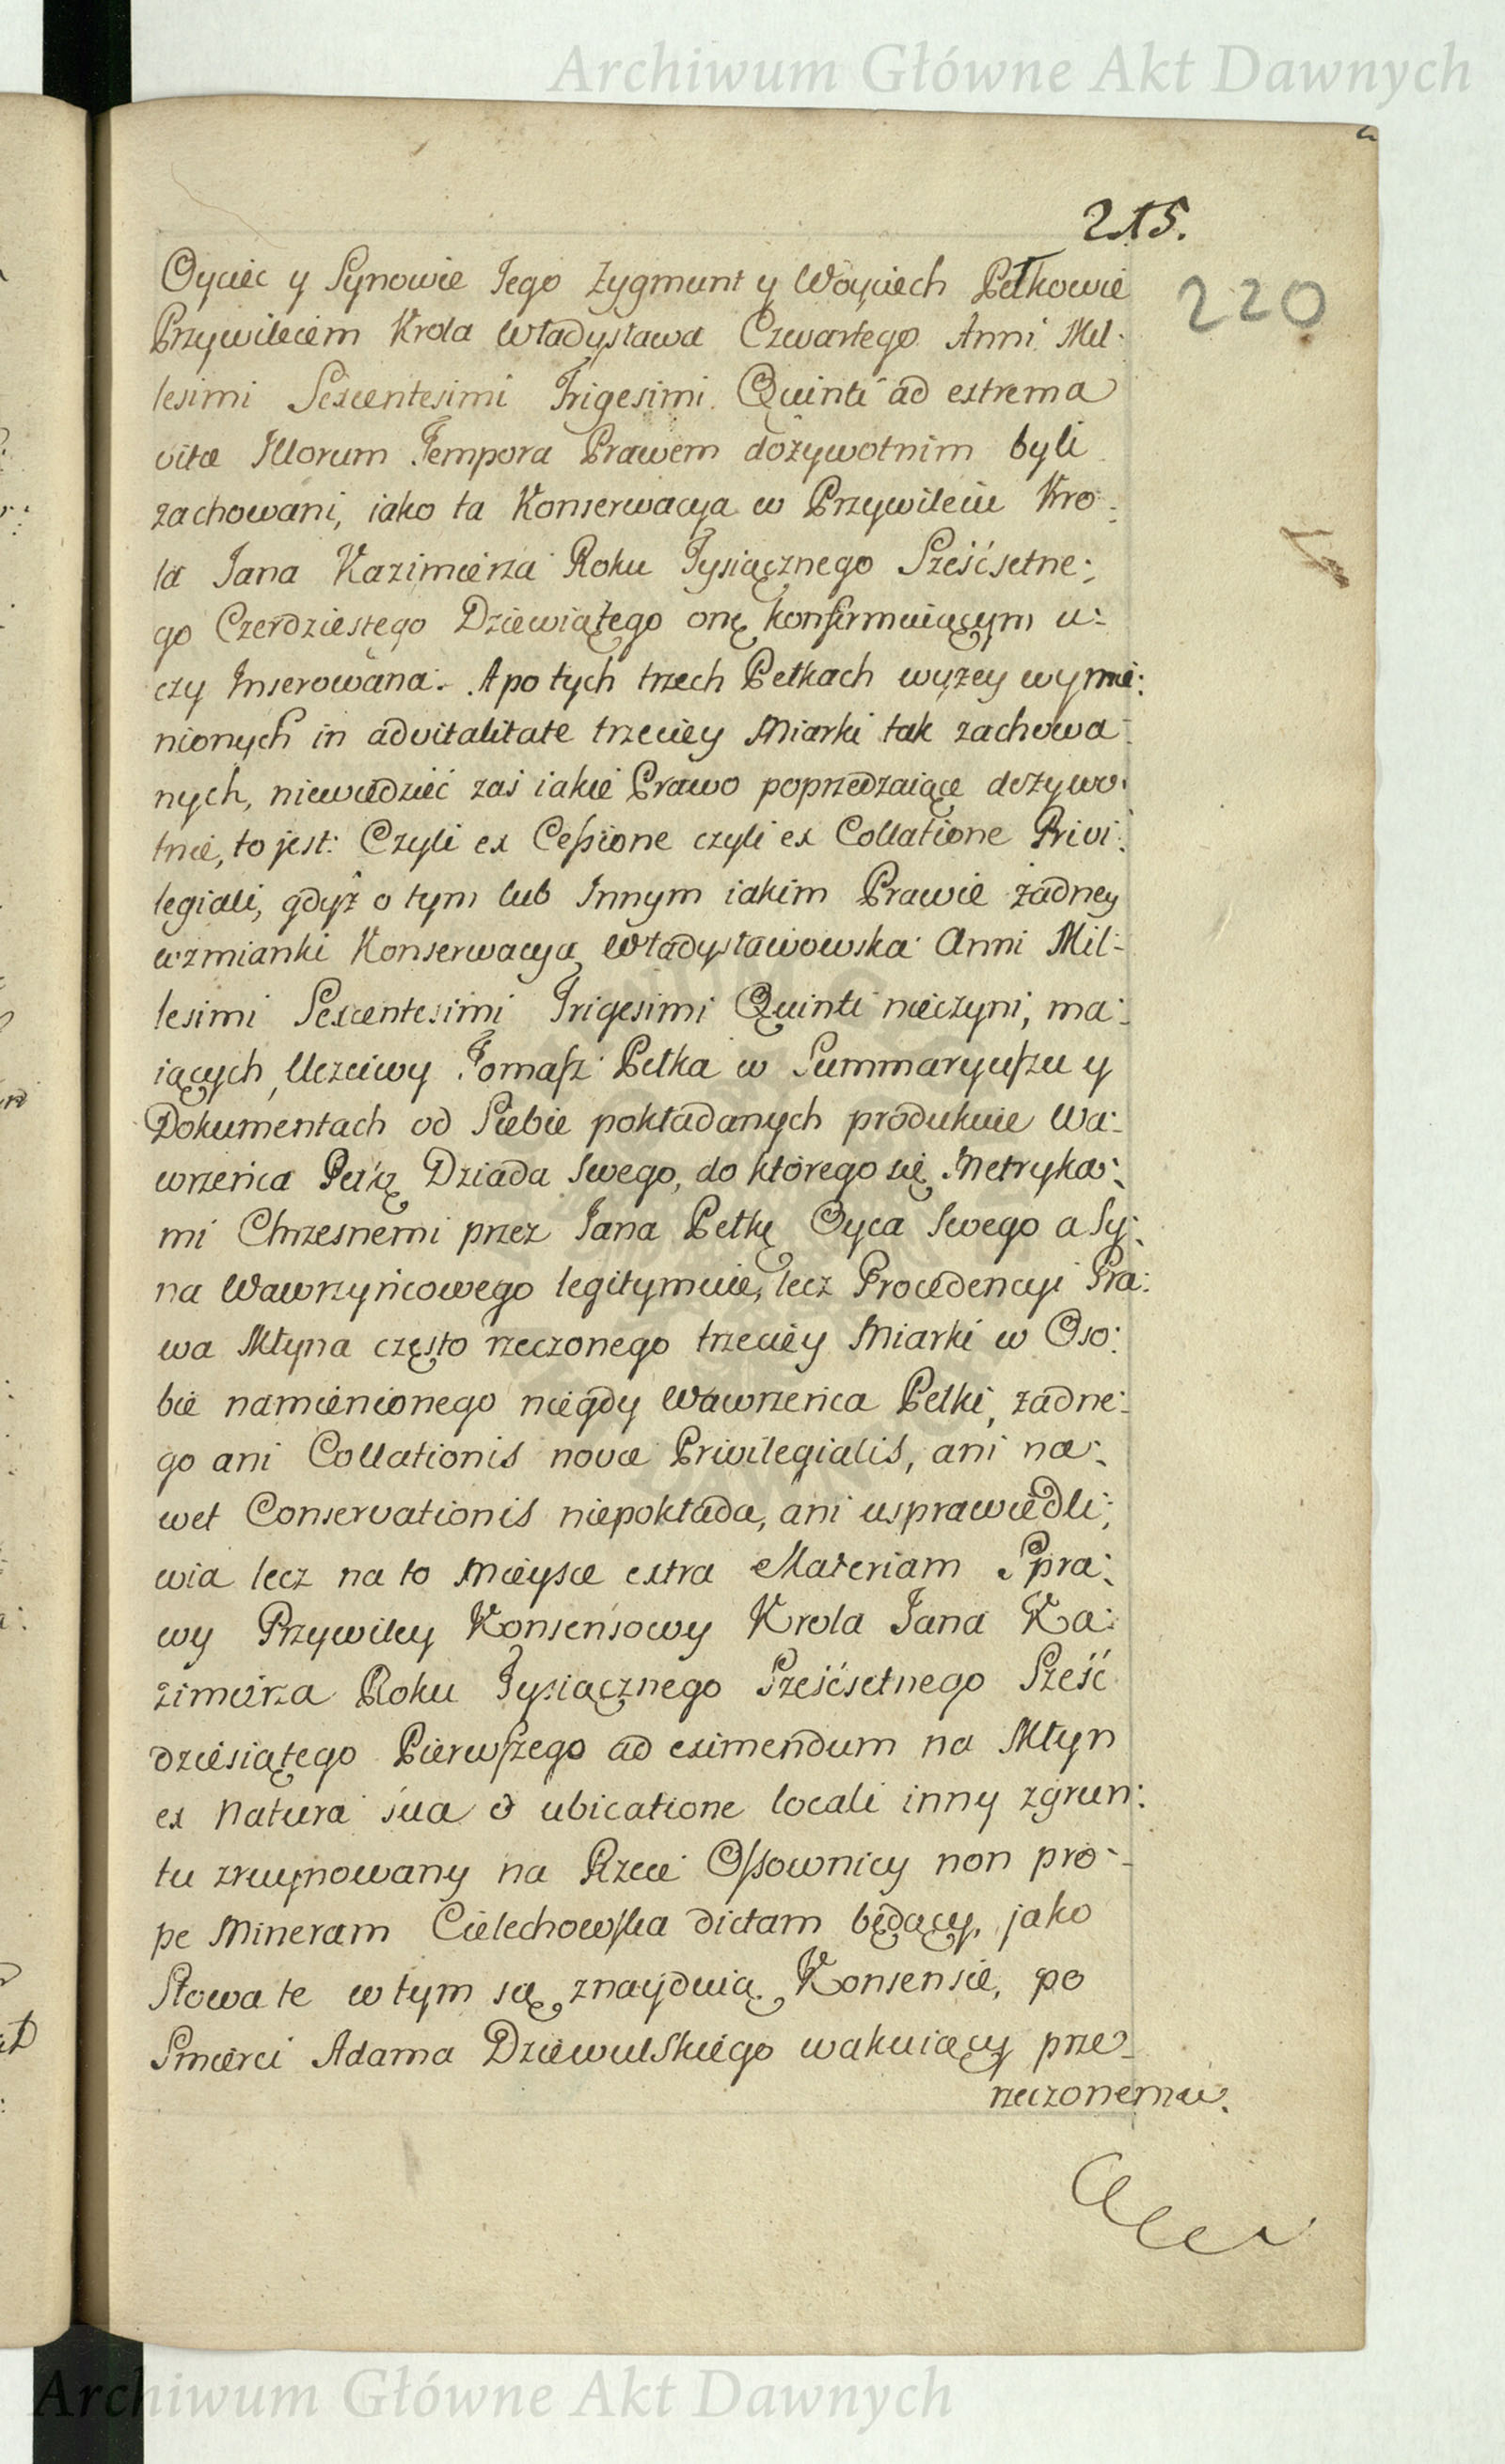 Archiwum Główne Akt Dawnych
215.
220
Oyciec y Synowie Jego Zygmunt y Woyciech Pełkowie
Przywileiem Krola Władysława Czwartego Anni Mil:
lesimi Sexcentesimi Trigesimi Quinti ad extrema
vitæ Illorum Tempora Prawem dożywotnim byli
zachowani, iako ta Konserwacya w Przywileiu Kro:
la Jana Kazimierza Roku Tysiącznego Sześćsetne:
go Czerdziestego Dziewiątego onę konfirmuiącym u:
czy Inserowana. A po tych trzech Pełkach wyżey wymie:
nionych in advitalitate trzeciey Miarki tak zachowa:
nych, niewiedzieć zaś iakie Prawo poprzedzaiące dożywo:
tnie, to jest: Czyli ex Cessione czyli ex Collatione Privi:
legiali, gdyż o tym lub Innym iakim Prawie żadney
wzmianki Konserwacya Władysławowska Anni Mil:
lesimi Sexcentesimi Trigesimi Quinti nieczyni, ma:
iących, Uczciwy Tomasz Pełka w Summaryuszu y
Dokumentach od Siebie pokładanych produkuie Wa:
wrzeńca Pełkę Dziada Swego, do którego się Metryka:
mi Chrzesnemi przez Jana Pełkę Oyca Swego a Sy:
na Wawrzyńcowego legitymuie, lecz Procedencyi Pra:
wa Młyna często rzeczonego trzeciey Miarki w Oso:
bie namienionego niegdy Wawrzeńca Pełki, żadne:
go ani Collationis novæ Privilegialis, ani na:
wet Conservationis niepokłada, ani usprawiedli:
wia lecz na to Mieysce extra Materiam Spra:
wy Przywiley Konsensowy Krola Jana Ka:
zimierza Roku Tysiącznego Sześćsetnego Sześć
dziesiątego Pierwszego ad eximendum na Młyn
ex Natura sua & ubicatione locali inny zgrun:
tu zruynowany na Rzece Ossownicy non pro:
pe Mineram Cielechowska dictam będący, jako
Słowa te w tym są znayduią Konsensie, po
Smierci Adama Dziewulskiego wakuiący prze:
rzeczonemu.
Archiwum Główne Akt Dawnych